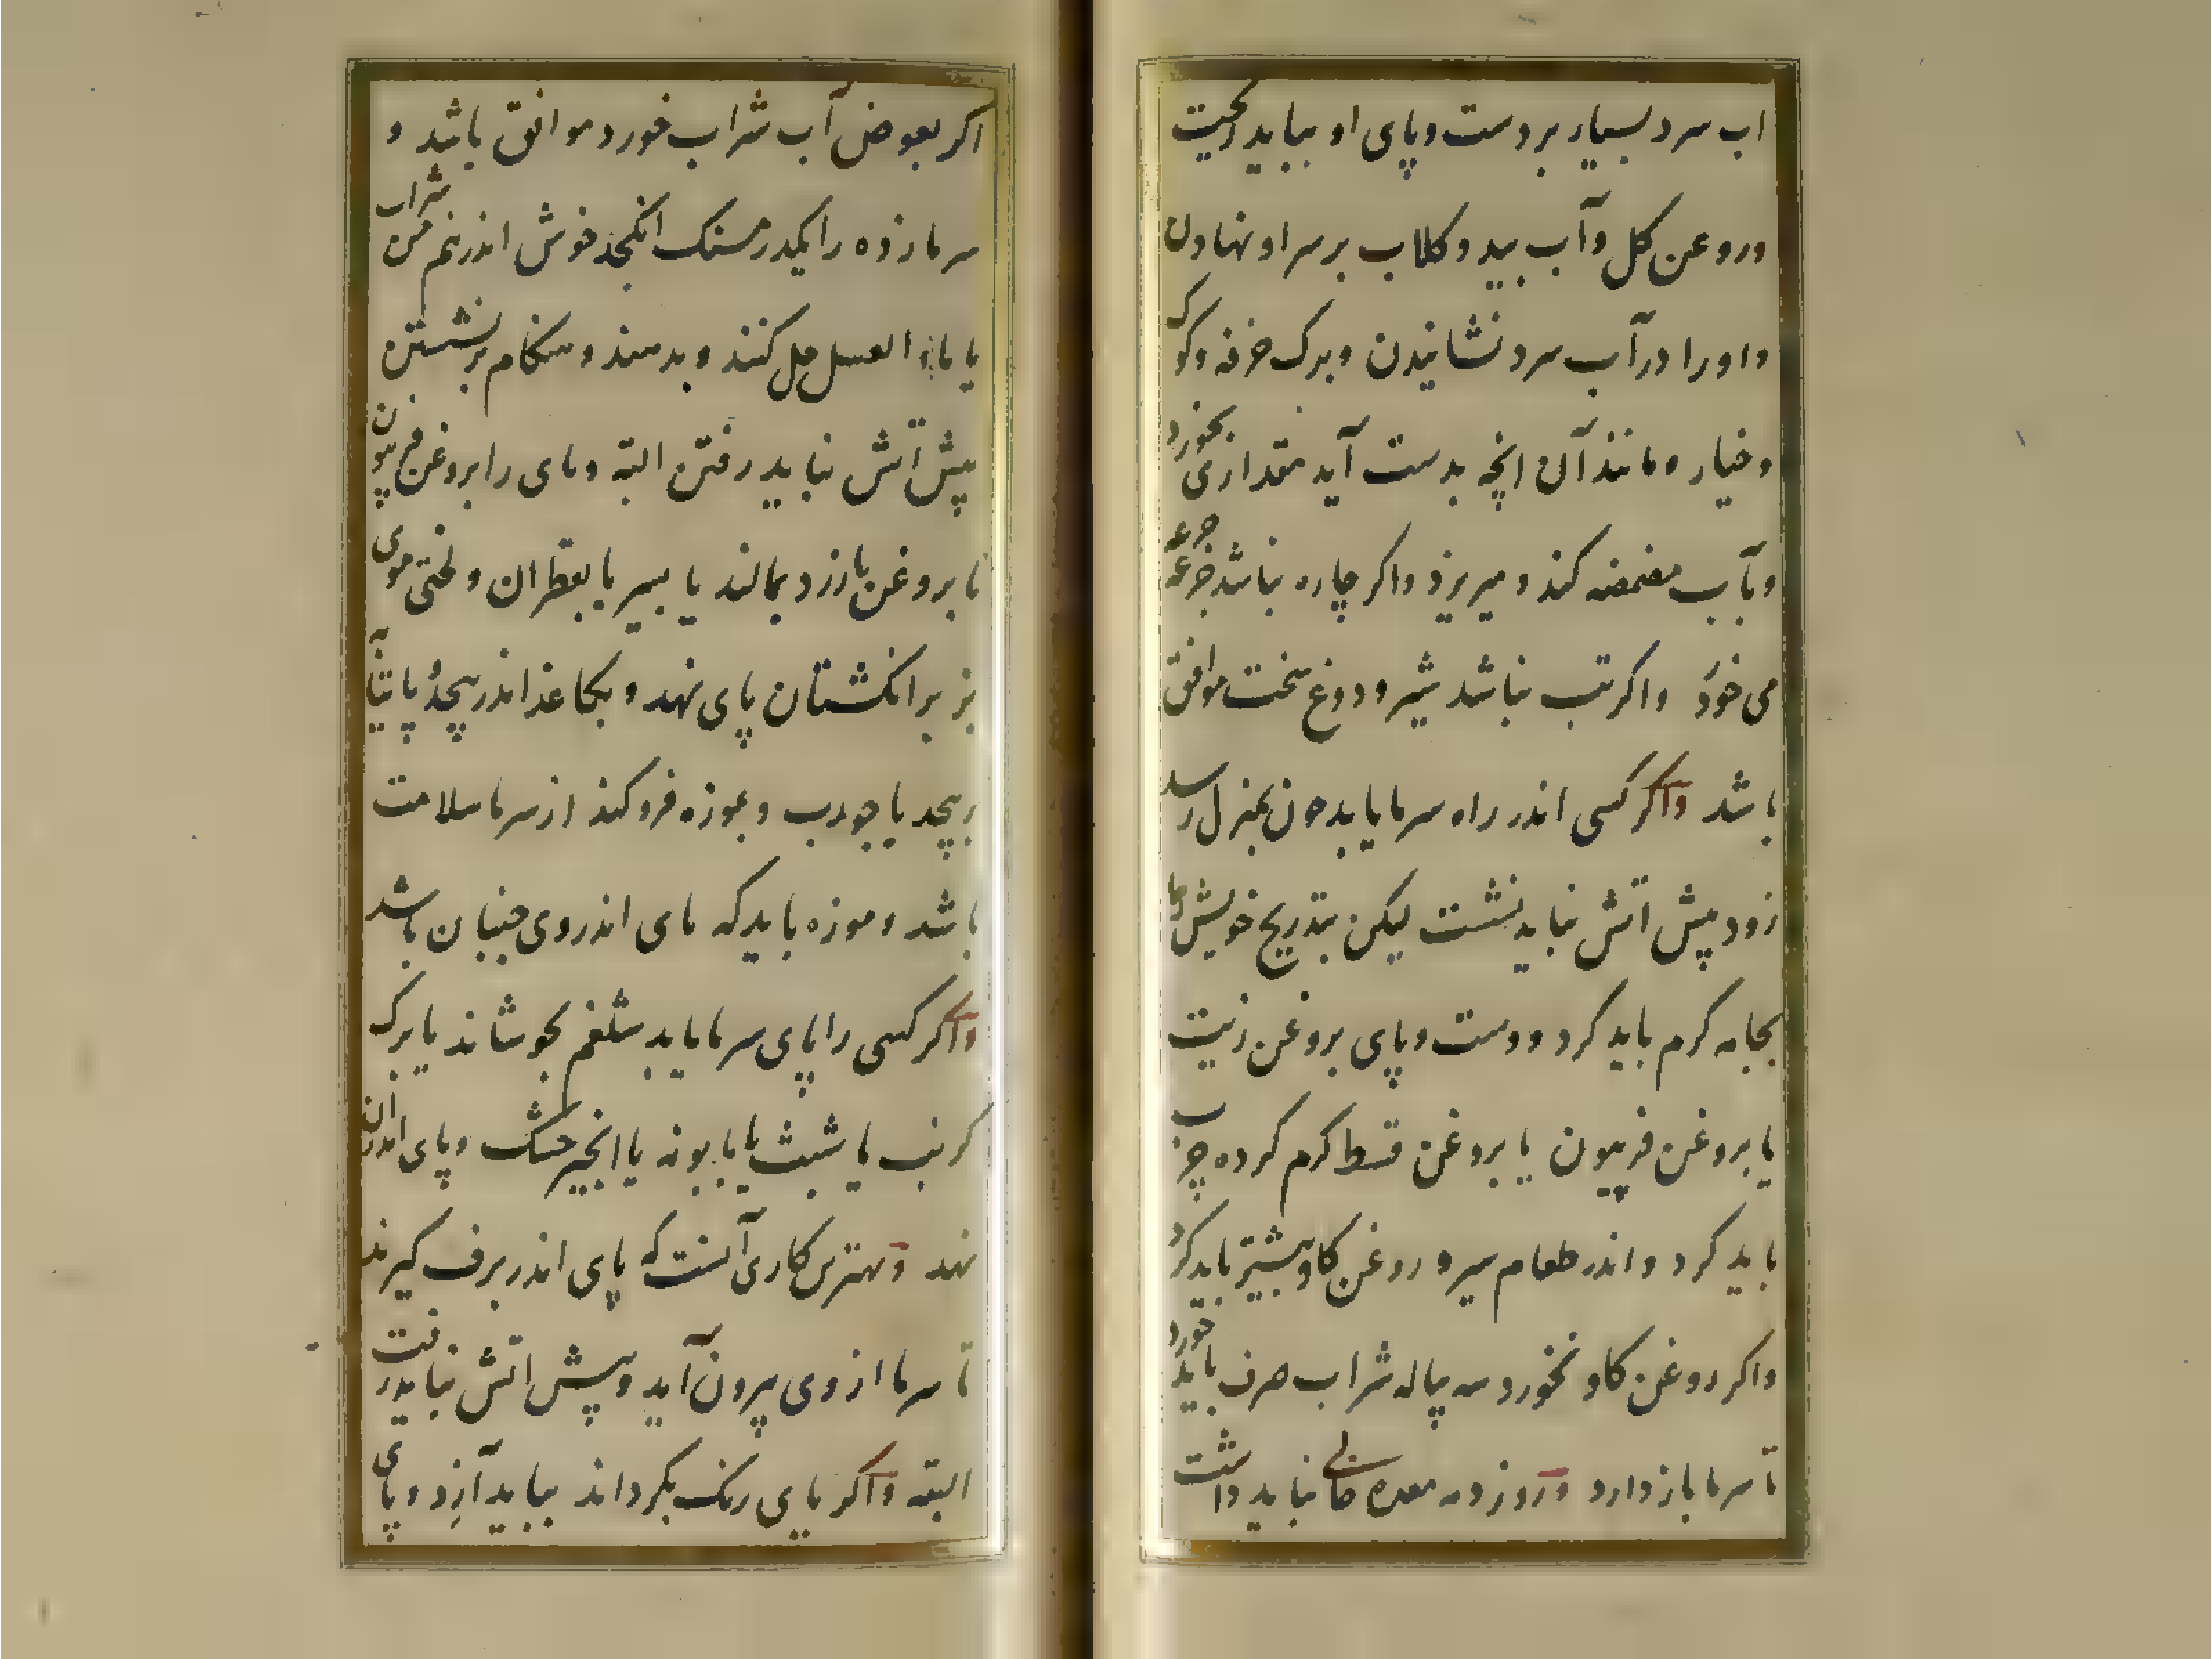 اب سرد بسیار بر دست و پای او ببایدریخت
وروعن کل وآب بید و کلاب بر سر او نهادن
واورا درآب سرد نشانیدن وبرک خرفه وکوک
وخیار و مانند آن انچه بدست آید مقداری بخورد
وبآب مضمضه کند و میریزد واکر چاره نباشد جرعه جرعه
می خورد واکر تب نباشد شیر و دوغ سخت موافق
باشد واکر کسی اندر راه سرما یابد چون بمنزل رسد
زود پیش اتش نباید نشست لیکن بتدریج خویش را
بجامه کرم باید کرد ودست وپای بروغن زیت
یا بروغن فرپیون یا بروغن قسط کرم کرده چرب
باید کرد واندر طعام سیر و روغن کاو بیشتر باید کرد
واکر روغن کاو نخورد سه پیاله شراب صرف باید خورد
تا سرما بازدارد وروز دمه معده خالی نباید داشت
اکر بعوض آب شراب خورد موافق باشد و
سرمازده را یکدرمسنک انکجد خوش اندر نیم من شراب
یا ماء العسل حل کنند و بدهند و هنکام برنشستن
پیش آتش نباید رفتن البته وپای را بروغن فرپیون
یا بروغن بارزد بمالند یا بسیر یا بقطران و لختی موی
بز بر انکشتان پای نهد و بکاغذ اندر پیچد یا پتیآبه
برپیچد یا جورب و بموزه فروکند از سرما سلامت
باشد و موزه باید که پای اندر وی جنبان باشد
واکر کسی را پای سرما یابد شلغم بجوشاند یا برک
کرنب یا شبث یا بابونه یا انجیر خشک وپای اندران
نهد وبهترین کاری آنست که پای اندر برف کیرند
تا سرما از وی بیرون آید وپیش اتش نباید رفت
البته واکر پای رنک بکرداند ببباید آزد وپای